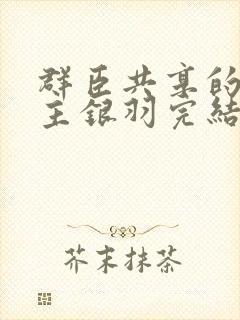 群臣共享的
主銀羽完結
芥末抹茶